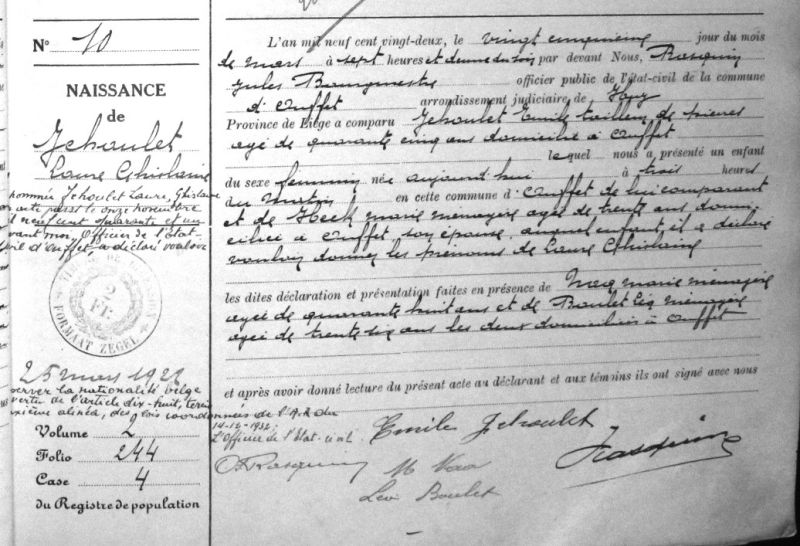 N° 10
NAISSANCE
de
Jehoulet
Laure Ghislaine
nommée Jehoulet Laure, Ghislaine
acte passé le onze novembre
neuf cent quarante et un
vant moi, Officier de l'Etat-
civil d'Ouffet, a déclaré vouloir
2
FR.
FORMAAT ZEGEL
25 mars 1922
server la nationalité belge
vertu de l'article dix-huit,
xième alinéa, des lois coordonnées de l'A.R. du
14-12-1932.
L'Officier de l'Etat-civil
O. Rasquin
Volume 2
Folio 244
Case 4
du Registre de population
L'an mil neuf cent vingt-deux, le vingt cinquième jour du mois
de mars à sept heures et demie du soir par devant Nous, Rasquin
Jules Bourgmestre officier public de l'état-civil de la commune
d'Ouffet arrondissement judiciaire de Huy
Province de Liège a comparu Jehoulet Emile tailleur de pierres
agé de quarante cinq ans domicilié à Ouffet
lequel nous a présenté un enfant
du sexe féminin née aujourd'hui à trois heures
du matin en cette commune d'Ouffet de lui comparant
et de Heck Marie ménagère agée de trente ans domi
ciliée à Ouffet son épouse, auquel enfant il a déclaré
vouloir donner les prénoms de Laure Ghislaine
les dites déclaration et présentation faites en présence de marie ménagère
agée de quarante huit ans et de Boulet ménagère
agée de trente six ans les deux domiciliés à Ouffet
et après avoir donné lecture du présent acte au déclarant et aux témoins ils ont signé avec nous
Emile Jehoulet
Rasquin
M
Boulet